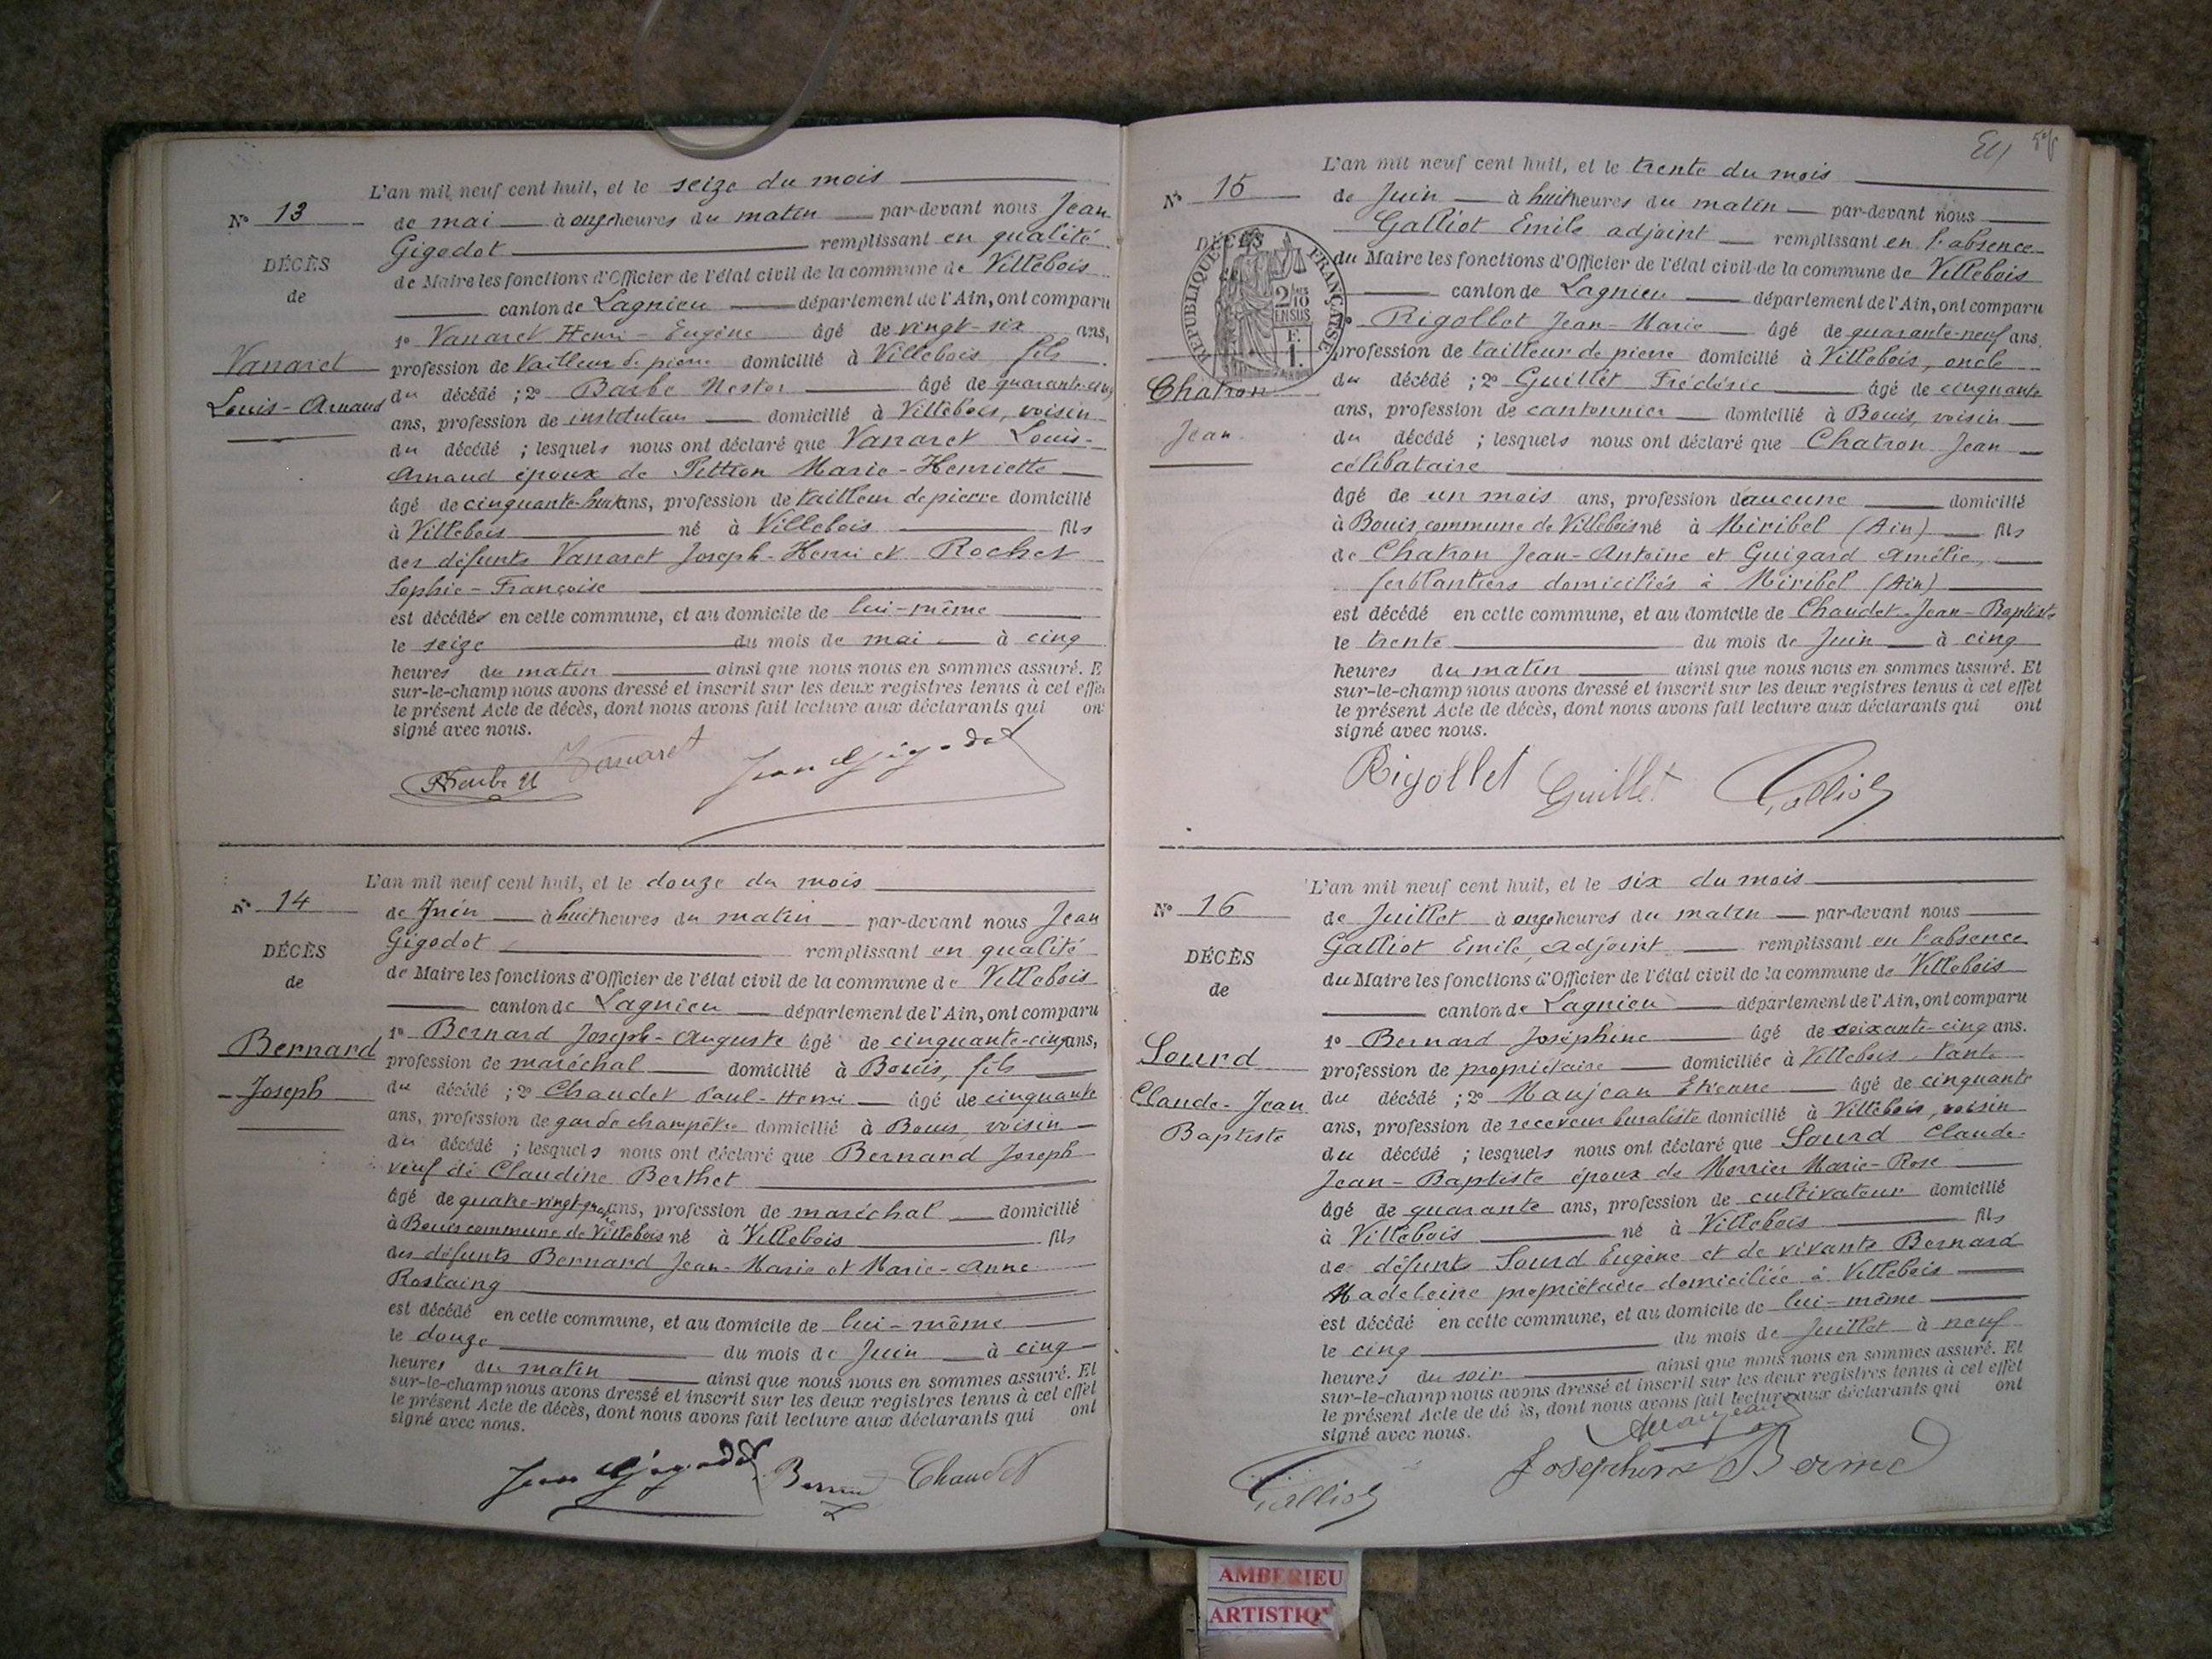 L'an mil neuf cent huit, et le seize du mois
N° 13
de mai à onze heures du matin par-devant nous Jean
Gigodot remplissant en qualité
DÉCÈS
de Maire les fonctions d'Officier de l'état civil de la commune de Villebois
de
canton de Lagnieu département de l'Ain, ont comparu
1° Vanaret Henri-Eugène âgé de vingt-six ans,
Vanaret
profession de tailleur de pierre domicilié à Villebois fils
Louis-Arnaud
du décédé ; 2° Barbe Nestor âgé de quarante-cinq
ans, profession de instituteur domicilié à Villebois, voisin
du décédé ; lesquels nous ont déclaré que Vanaret Louis-
Arnaud époux de Pittion Marie-Henriette
âgé de cinquante-huit ans, profession de tailleur de pierre domicilié
à Villebois né à Villebois fils
des défunts Vanaret Joseph-Henri et Rochet
Sophie-Françoise
est décédés en cette commune, et au domicile de lui-même
le seize du mois de mai à cinq
heures du matin ainsi que nous nous en sommes assuré. E
sur-le-champ nous avons dressé et inscrit sur les deux registres tenus à cet effe
le présent Acte de décès, dont nous avons fait lecture aux déclarants qui on
signé avec nous.
Vanaret Jean Gigodot
L'an mil neuf cent huit, et le douze du mois
N° 14
de Juin à huit heures du matin par-devant nous Jean
Gigodot remplissant en qualité
DÉCÈS
de Maire les fonctions d'Officier de l'état civil de la commune de Villebois
de
canton de Lagnieu département de l'Ain, ont comparu
Bernard
1° Bernard Joseph-Auguste âgé de cinquante-cinq ans,
profession de maréchal domicilié à Bouis, fils
Joseph
du décédé ; 2° Chaudet Paul-Henri âgé de cinquante
ans, profession de garde champêtre domicilié à Bouis, voisin
du décédé ; lesquels nous ont déclaré que Bernard Joseph
veuf de Claudine Berthet
âgé de quatre-vingt-quatre ans, profession de maréchal domicilié
à Bouis commune de Villebois né à Villebois fils
des défunts Bernard Jean-Marie et Marie-Anne
Rostaing
est décédé en cette commune, et au domicile de lui-même
le douze du mois de Juin à cinq
heures du matin ainsi que nous nous en sommes assuré. Et
sur-le-champ nous avons dressé et inscrit sur les deux registres tenus à cet effet
le présent Acte de décès, dont nous avons fait lecture aux déclarants qui ont
signé avec nous.
Jean Gigodot Bernard Chaudet
L'an mil neuf cent huit, et le trente du mois
N° 15
de Juin à huit heures du matin par-devant nous
Galliot Emile adjoint remplissant en l'absence
DÉCÈS
du Maire les fonctions d'Officier de l'état civil de la commune de Villebois
RÉPUBLIQUE FRANÇAISE
canton de Lagnieu département de l'Ain, ont comparu
2/10
EN SUS
1° Rigollet Jean-Marie âgé de quarante-neuf ans,
profession de tailleur de pierre domicilié à Villebois, oncle
Chatron
du décédé ; 2° Guillet Frédéric âgé de cinquante
ans, profession de cantonnier domicilié à Bouis, voisin
Jean
du décédé ; lesquels nous ont déclaré que Chatron Jean
célibataire
âgé de un mois ans, profession d'aucune domicilié
à Bouis commune de Villebois né à Miribel (Ain) fils
de Chatron Jean-Antoine et Guigard Amélie,
ferblantiers domiciliés à Miribel (Ain)
est décédé en cette commune, et au domicile de Chaudet Jean-Baptiste
le trente du mois de Juin à cinq
heures du matin ainsi que nous nous en sommes assuré. Et
sur-le-champ nous avons dressé et inscrit sur les deux registres tenus à cet effet
le présent Acte de décès, dont nous avons fait lecture aux déclarants qui ont
signé avec nous.
Rigollet Guillet Galliot
L'an mil neuf cent huit, et le six du mois
N° 16
de Juillet à onze heures du matin par-devant nous
Galliot Emile, adjoint remplissant en l'absence
DÉCÈS
du Maire les fonctions d'Officier de l'état civil de la commune de Villebois
de
canton de Lagnieu département de l'Ain, ont comparu
1° Bernard Joséphine âgé de soixante-cinq ans.
Sourd
profession de propriétaire domiciliée à Villebois, tante
Claude-Jean
du décédé ; 2° Maujean Etienne âgé de cinquante
Baptiste
ans, profession de receveur buraliste domicilié à Villebois, voisin
du décédé ; lesquels nous ont déclaré que Sourd Claude-
Jean-Baptiste époux de Merrier Marie-Rose
âgé de quarante ans, profession de cultivateur domicilié
à Villebois né à Villebois fils
de défunts Sourd Eugène et de vivante Bernard
Madeleine propriétaire domiciliée à Villebois
est décédé en cette commune, et au domicile de lui-même
le cinq du mois de Juillet à neuf
heures du soir ainsi que nous nous en sommes assuré. Et
sur-le-champ nous avons dressé et inscrit sur les deux registres tenus à cet effet
le présent Acte de dé ès, dont nous avons fait lecture aux déclarants qui ont
signé avec nous.
Maujean
Galliot Josephine Bernard
AMBERIEU
ARTISTIQ